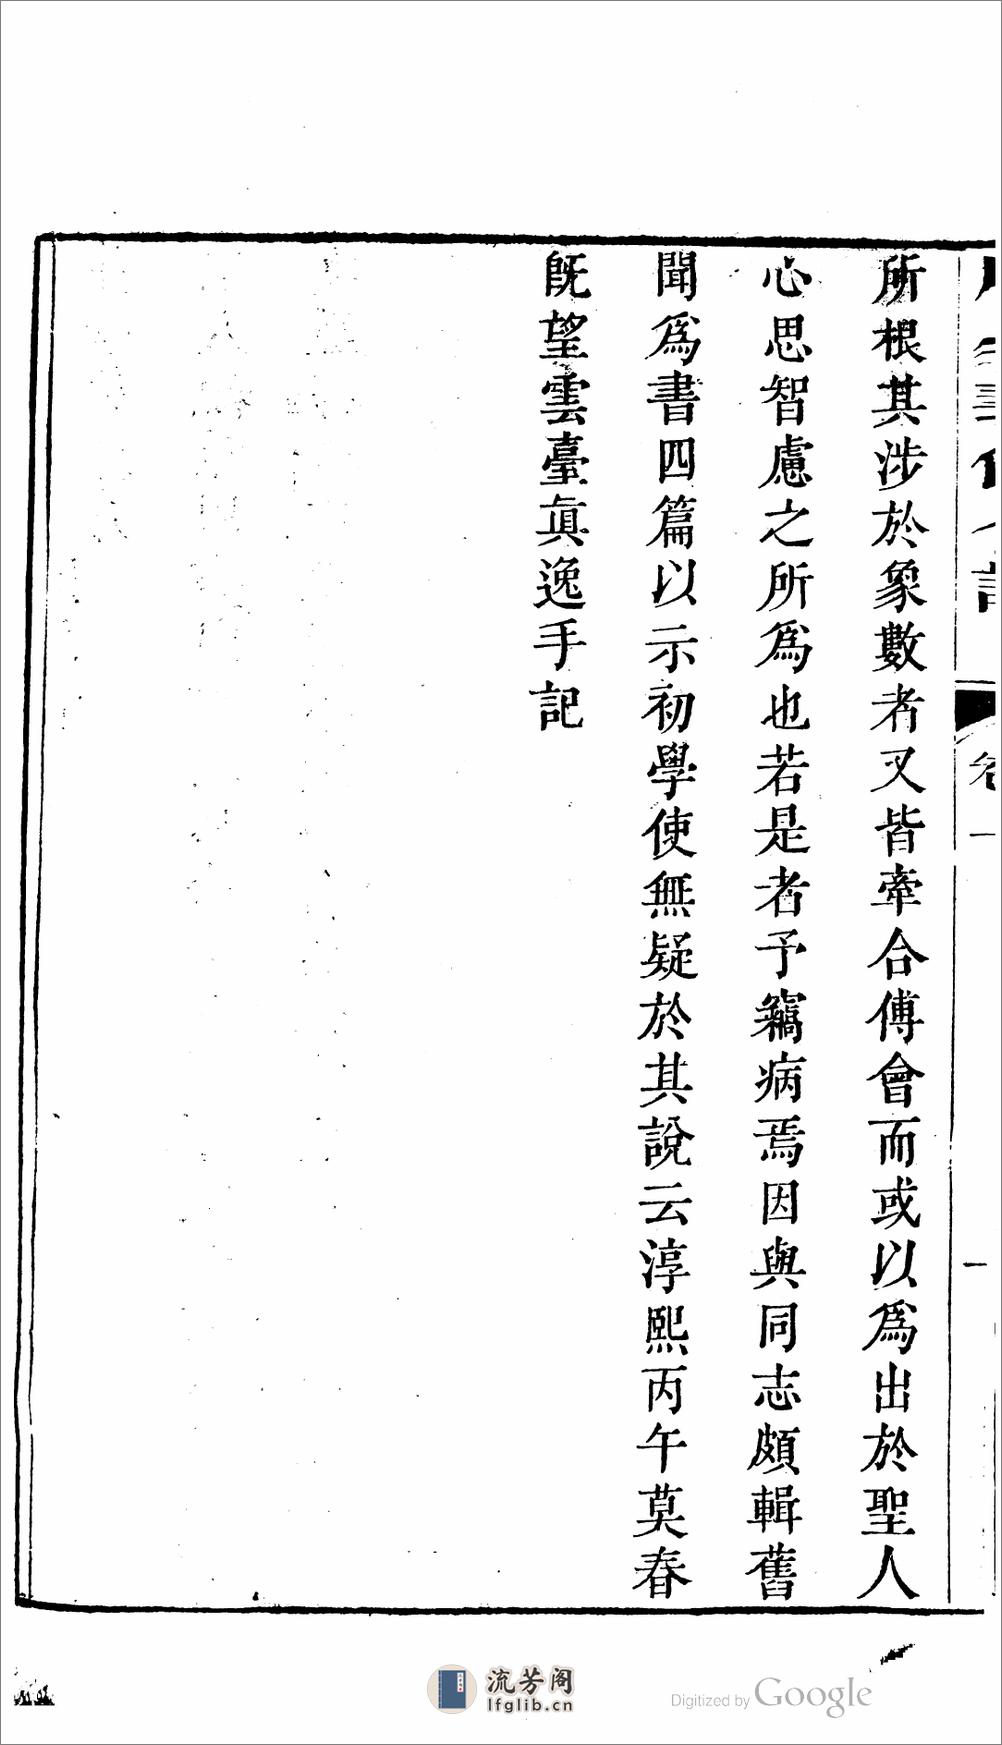 卷
一
一
所根其涉於象數者又皆牽合傅會而或以爲出於聖人
心思智慮之所爲也若是者予竊病焉因與同志頗輯舊
聞爲書四篇以示初學使無疑於其說云淳熙丙午莫春
旣望雲臺眞逸手記
流芳阁
lfglib.cn
Digitized by Google